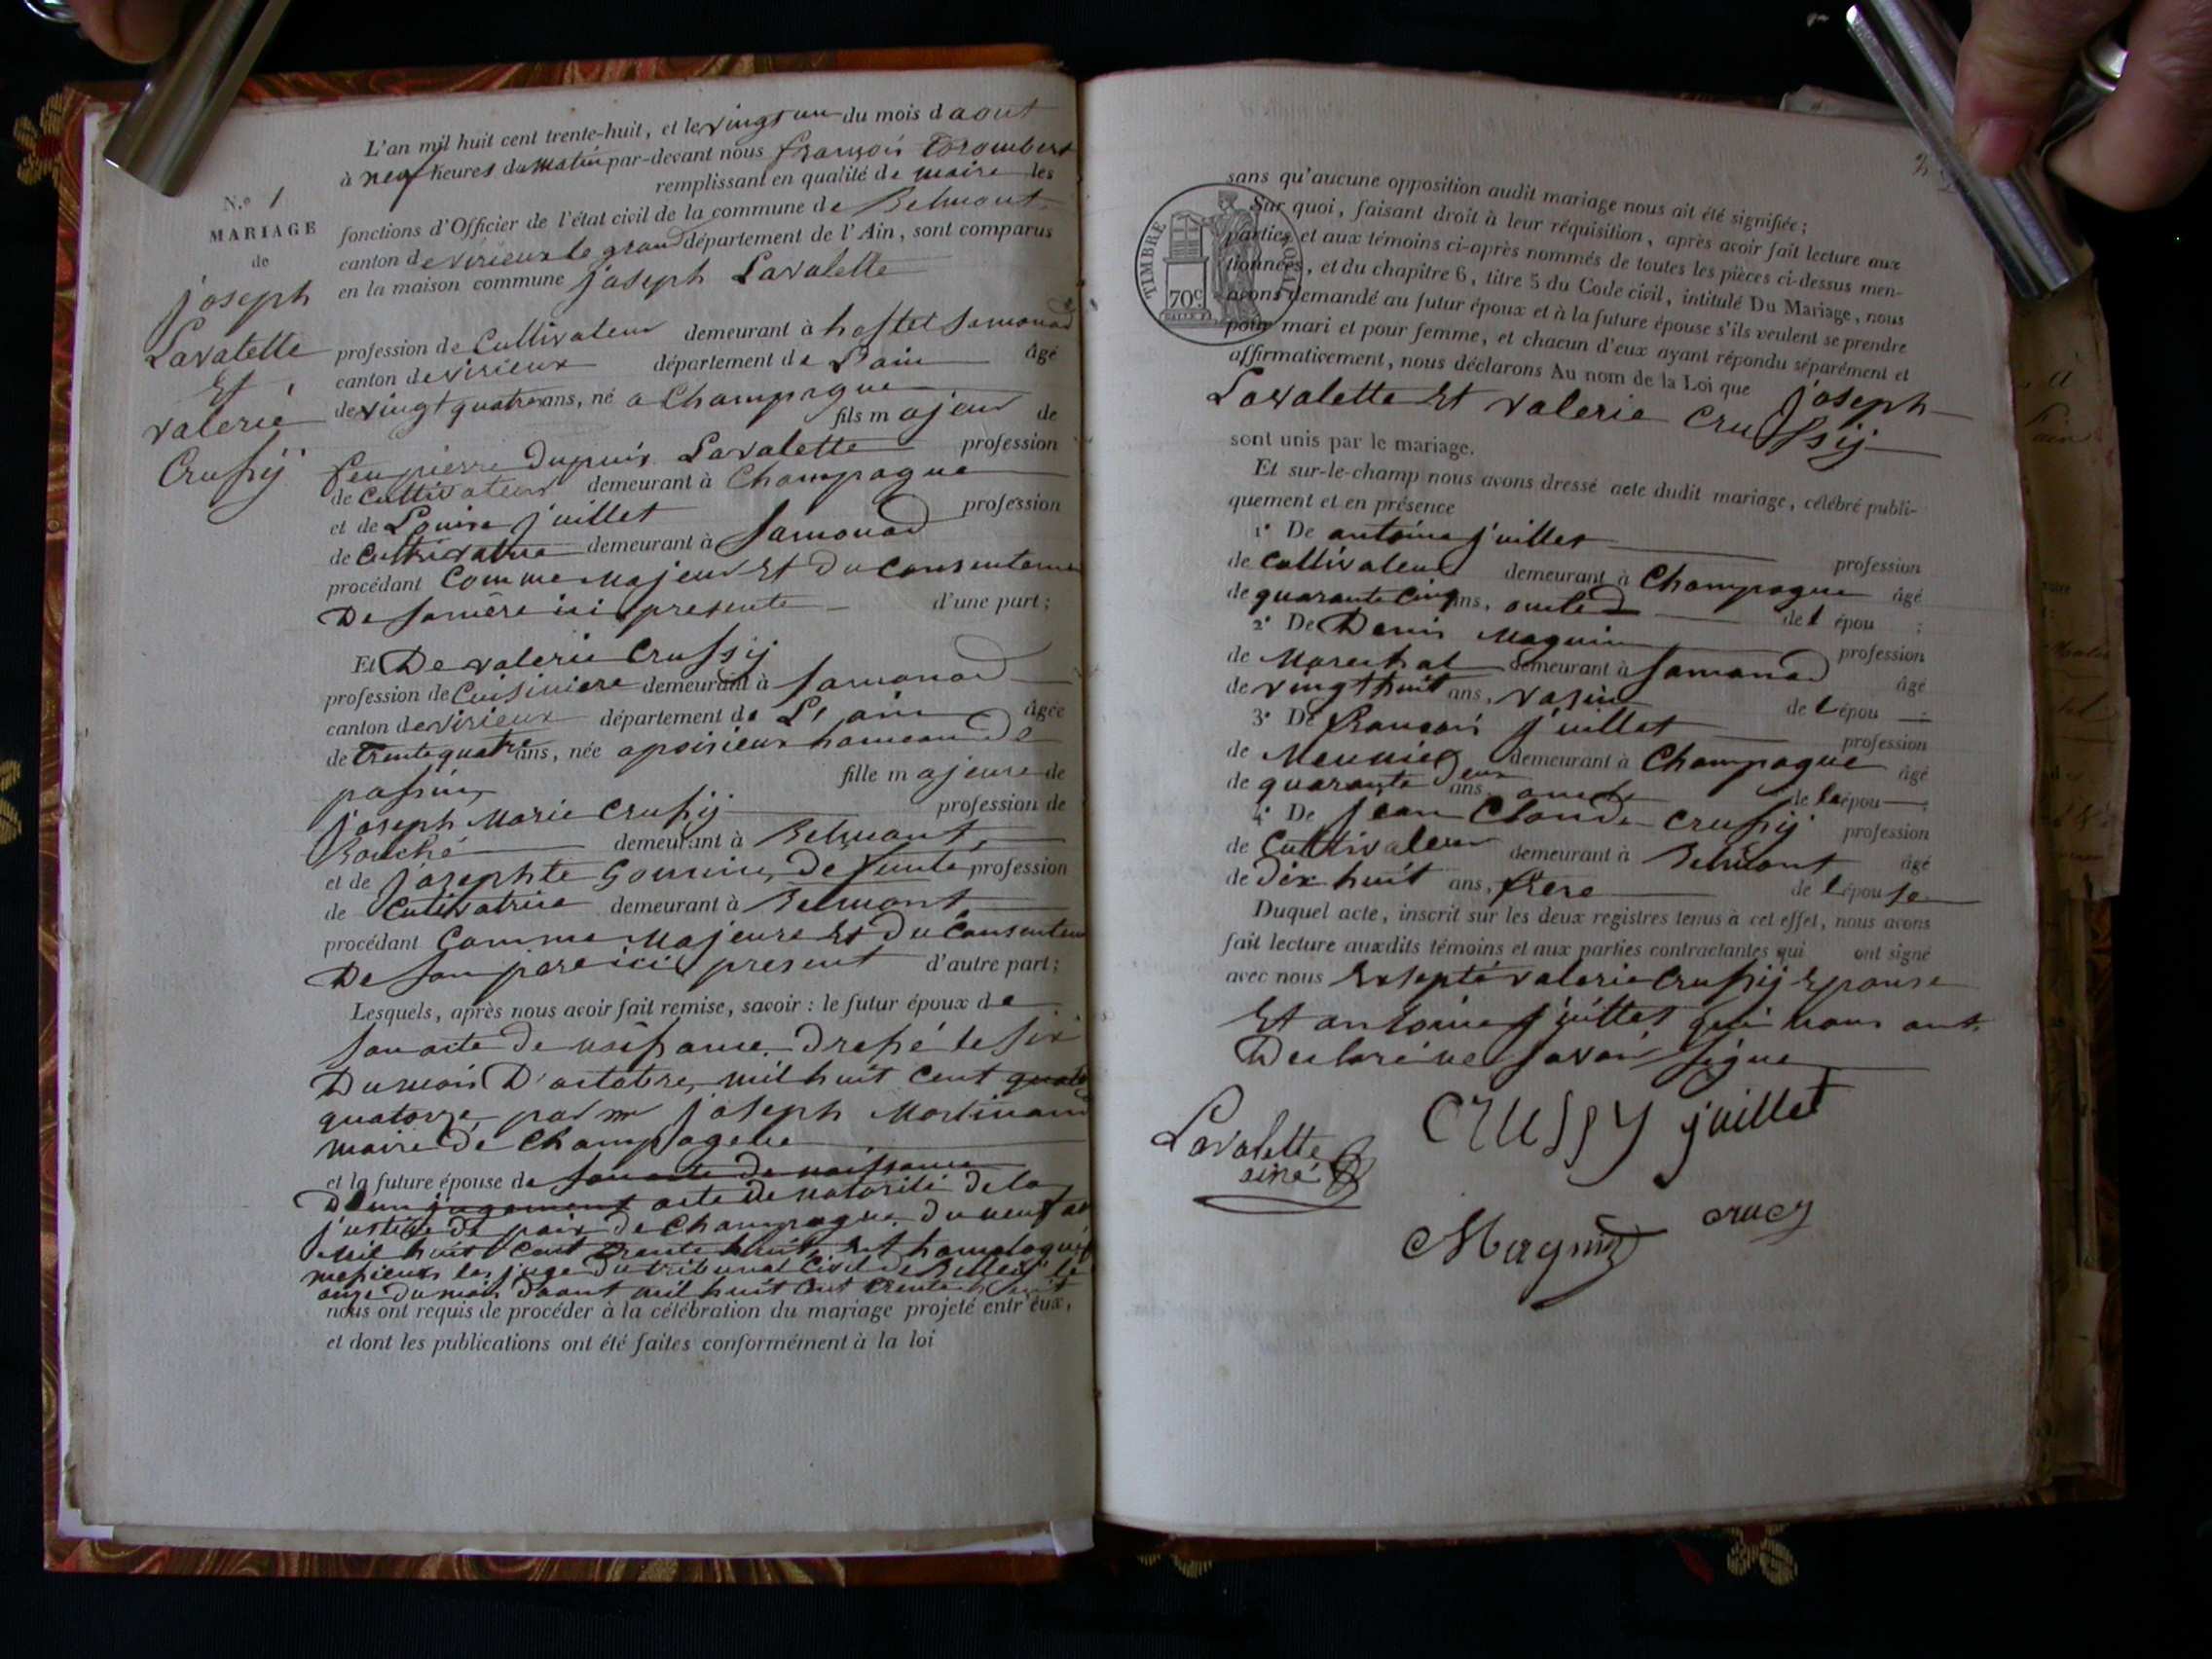 L'an mil huit cent trente-huit, et le vingt un du mois d aout
à neuf heures du matin par-devant nous françois Trombert
remplissant en qualité de maire les
fonctions d'Officier de l'état civil de la commune de Belmont
canton de virieux le grand département de l'Ain, sont comparus
en la maison commune joseph Lavalette
profession de Cultivateur demeurant à hostel Samonod
canton de virieux département de Lain âgé
de vingt quatre ans, né a Champagne
fils majeur de
feu pierre Dupuis Lavalette profession
de Cultivateur demeurant à Champagne
et de Louise juillet profession
de Cultivatrice demeurant à Samonod
procédant Comme Majeur Et Du Consenteme
De Samère ici presente d'une part;
N.º 1
MARIAGE
de
joseph
Lavalette
Et
valerie
Crussij
Et De valerie Crussij
profession de Cuisiniere demeurant à Samonod
canton de virieux département de L'ain âgée
de Trente quatre ans, née a poisieux hameau De
passin fille majeure de
joseph Marie Crussij profession de
demeurant à Belmont
et de josephte Gounin, Defunte profession
de Cultivatrice demeurant à Belmont
procédant Comme Majeure Et Du Consentem
De Son pere ici present d'autre part;
Lesquels, après nous avoir fait remise, savoir : le futur époux de
Son acte De naissance Dressé le Six
Du mois D'octobre mil huit Cent quato
quatorze par mr joseph Martinand
maire De Champagne
et la future épouse de Son acte De naissance
D'un jugement acte De notorité De la
justice De paix De Champagne Du neuf ao
Mil huit Cent Trente huit Et homologué
messieurs les juge Du tribunal Civil De Belley le
onze Du mois Daout mil huit Cent Trente huit
nous ont requis de procéder à la célébration du mariage projeté entr'eux,
et dont les publications ont été faites conformément à la loi
sans qu'aucune opposition audit mariage nous ait été signifiée;
Sur quoi, faisant droit à leur réquisition, après avoir fait lecture aux
parties et aux témoins ci-après nommés de toutes les pièces ci-dessus men-
tionnées, et du chapitre 6, titre 5 du Code civil, intitulé Du Mariage, nous
avons demandé au futur époux et à la future épouse s'ils veulent se prendre
pour mari et pour femme, et chacun d'eux ayant répondu séparément et
affirmativement, nous déclarons Au nom de la Loi que joseph
Lavalette Et valerie Crussij
sont unis par le mariage.
TIMBRE ROYAL
70c
Et sur-le-champ nous avons dressé acte dudit mariage, célébré publi-
quement et en présence
1° De antoine juillet profession
de Cultivateur demeurant à Champagne âgé
de quarante Cinq ans, oncle de l épou ;
2° De Denis Magnin profession
de Marechal demeurant à Samonod âgé
de vingt huit ans, vasin de l épou ;
3° De françois juillet profession
de Meunier demeurant à Champagne âgé
de quarante Deux ans, oncle de l épou ;
4° De jean Claude Crussij profession
de Cultivateur demeurant à Belmont âgé
de Dix huit ans, frere de l épou se
Duquel acte, inscrit sur les deux registres tenus à cet effet, nous avons
fait lecture auxdits témoins et aux parties contractantes qui ont signé
avec nous Exsepté valerie Crussij Epouse
Et antoine juillet qui nous ont
Declaré ne Savoir Signe
Lavalette
ainé
Crussy juillet
Magnin
crucy